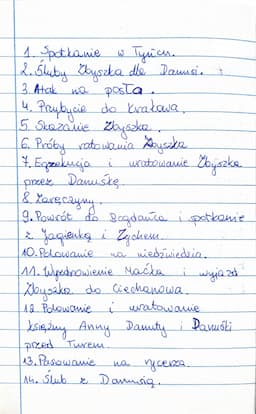 1. Spotkanie w Tyńcu.
2. Śluby Zbyszka dla Danusi.
3. Atak na posła.
4. Przybycie do Krakowa.
5. Skazanie Zbyszka.
6. Próby ratowania Zbyszka
7. Egzekucja i uratowanie Zbyszka
przez Danuśkę.
8. Zaręczyny.
9. Powrót do Bogdańca i spotkanie
z Jagienką i Zychem.
10. Polowanie na niedźwiedzia.
11. Uzdrowienie Maćka i wyjazd
Zbyszka do Ciechanowa.
12. Polowanie i uratowanie
księżny Anny Danuty i Danuśki
przed Turem.
13. Pasowanie na rycerza.
14. Ślub z Danusią.